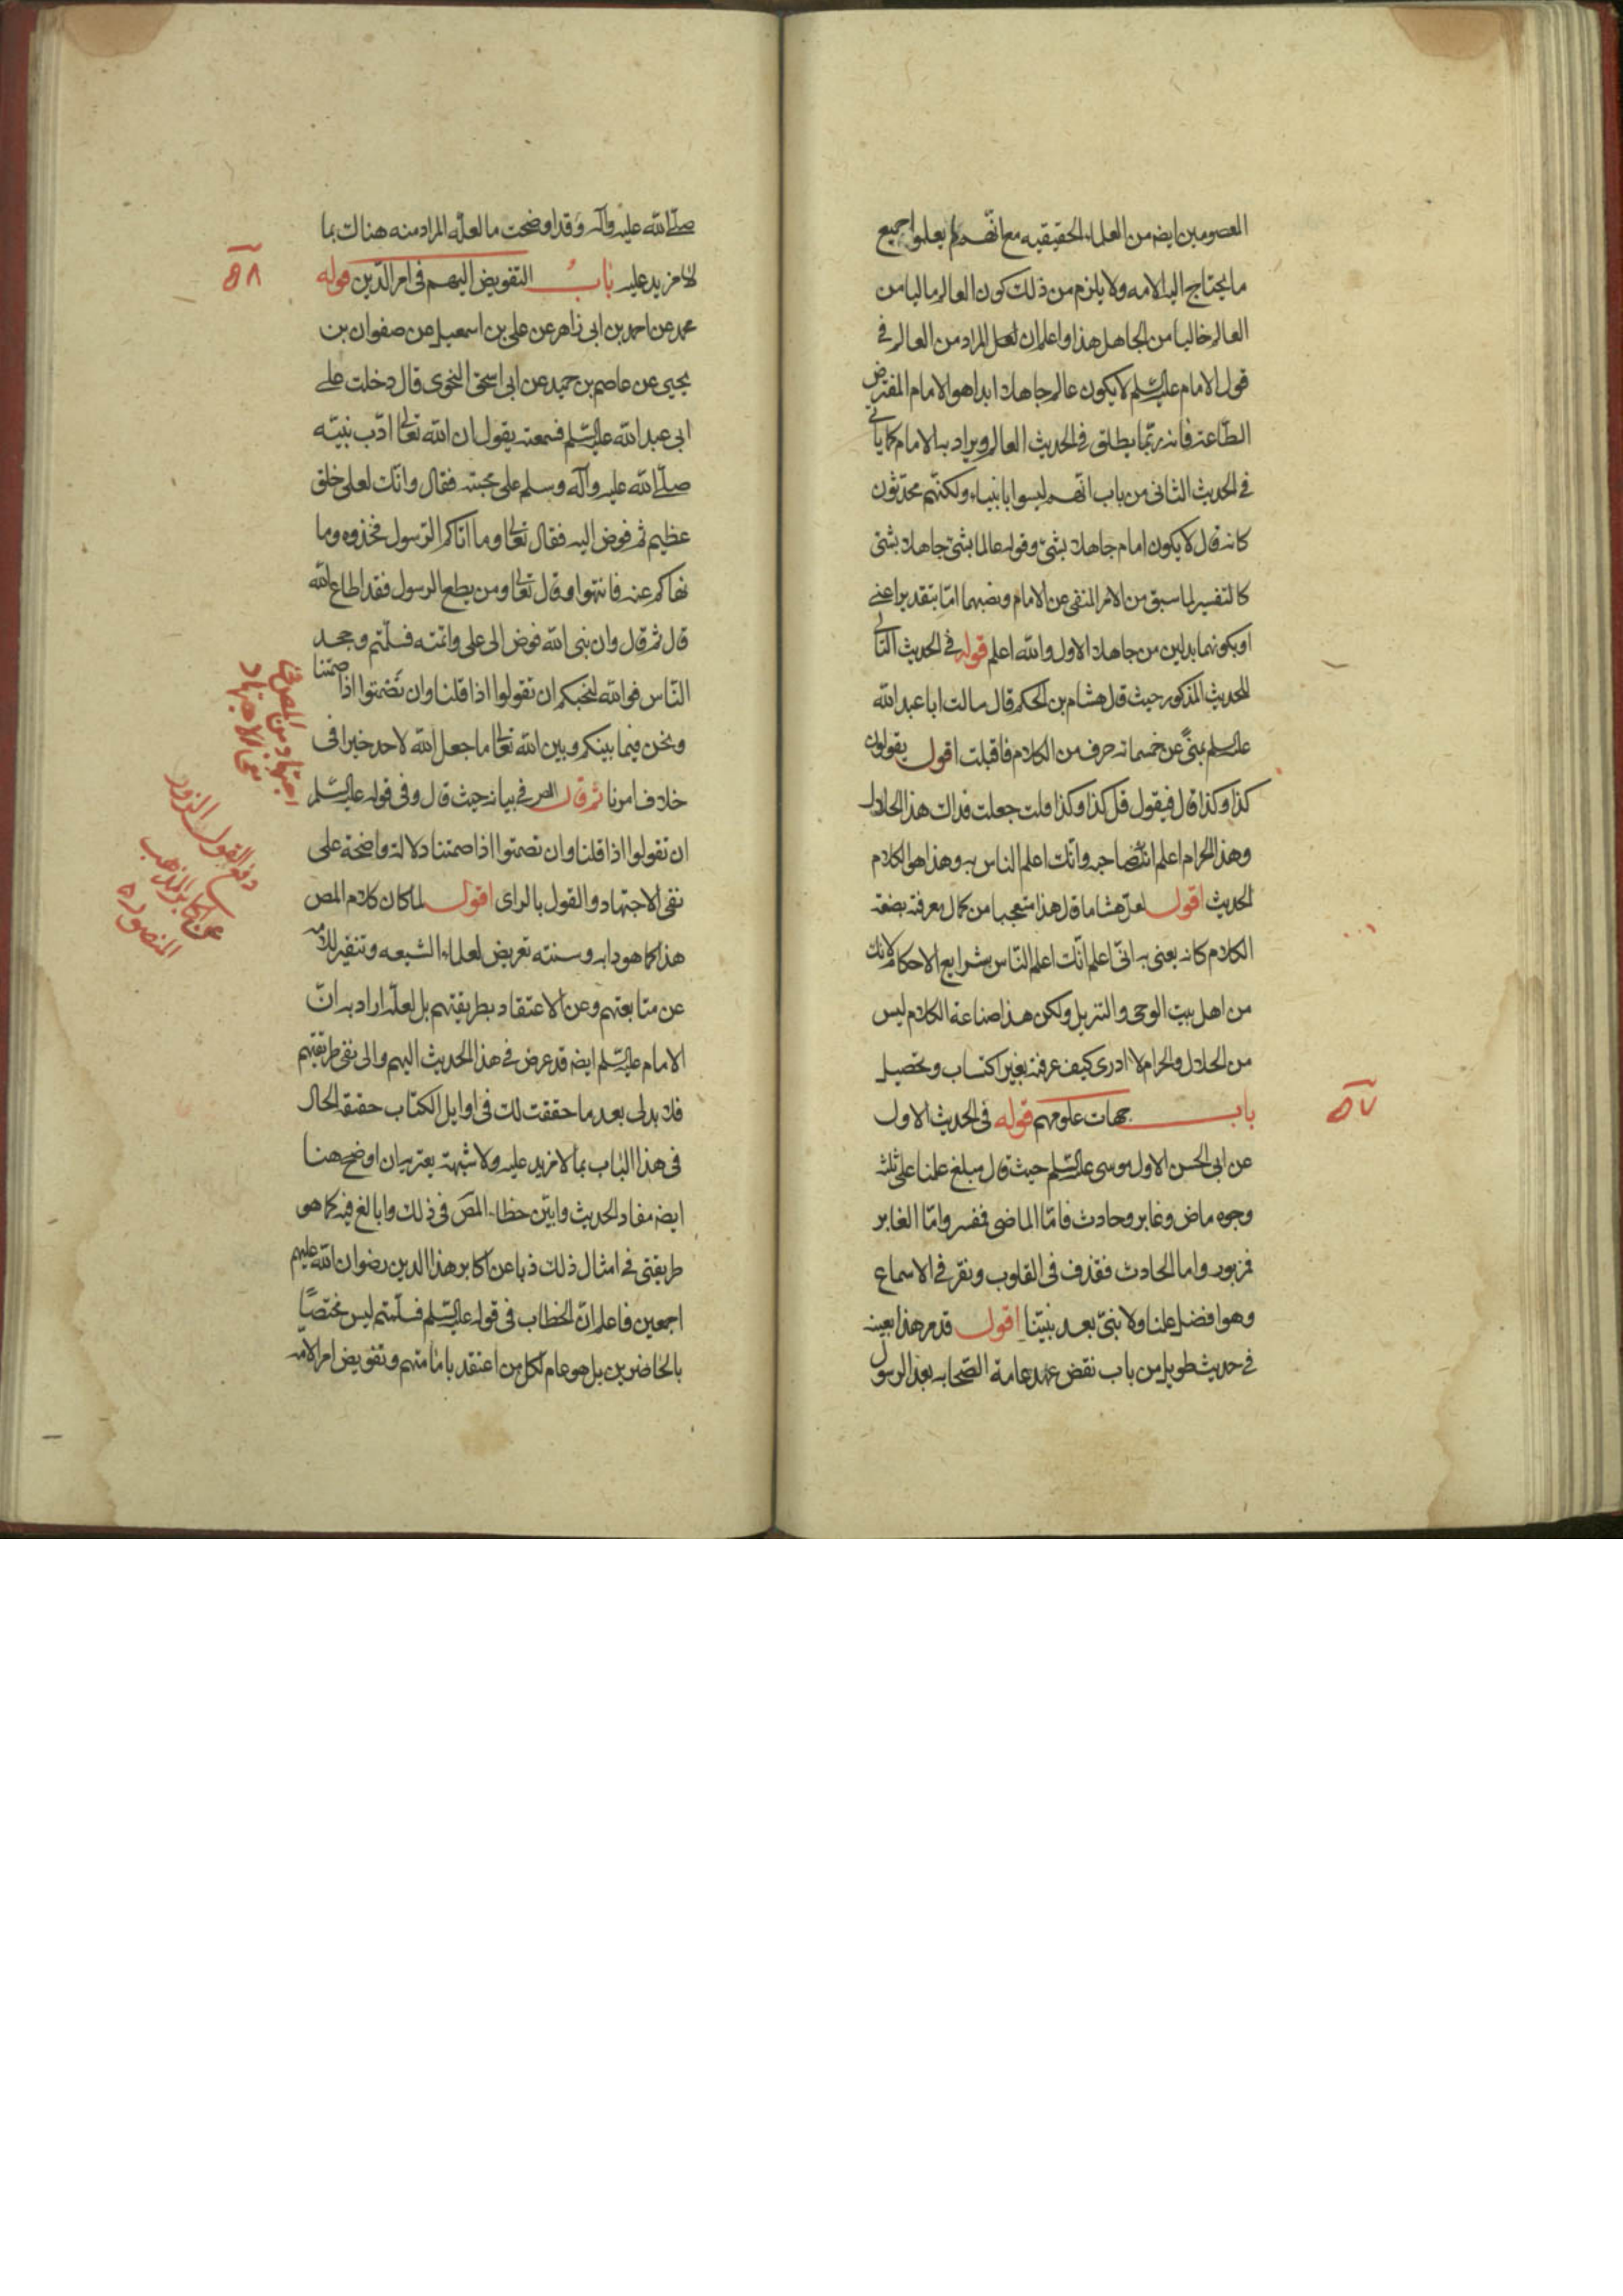 المعصومين ايضه من العلماء الحقيقيه مع انهم لم يعلموا جميع
ما يحتاج اليه الامه ولا يلزم من ذلك كون العالم ماليا من
العالم خاليا من الجاهل هذا واعلم ان لعل المراد من العالم في
قول الامام عليه السلم لا يكون عالم جاهلا ابدا هو الامام المفترض
الطاعة فانه ربّما يطلق في الحديث العالم ويراد به الامام كما ياتي
في الحديث الثاني من باب انهم ليسوا بانبياء ولكنهم محدّثون
كانه قال لا يكون امام جاهلا بشئ وقوله عالما بشئ جاهلا بشئ
كالتفسير لما سبق من الامر المنفي عن الامام ونصبهما امّا بتقدير اعني
او بكونهما بدلين من جاهلا الاول والله اعلم قوله في الحديث التالي
للحديث المذكور حيث قال هشام بن الحكم قال سالت ابا عبد الله
عليه السلم بمنىً عن خمسمائه حرف من الكلام فاقبلت اقول يقولون
كذا وكذا قال فيقول قل كذا وكذا قلت جعلت فداك هذا الحلال
وهذا الحرام اعلم انك صاحبه وانك اعلم الناس به وهذا هو الكلام
الحديث اقول لعل هشاما قال هذا متعجبا من كمال معرفته بصنعة
الكلام كانه يعني به انّي اعلم انّك اعلم النّاس بشرايع الاحكام لانك
من اهل بيت الوحي والتنزيل ولكن هذا صناعة الكلام ليس
من الحلال والحرام لا ادري كيف عرفته بغير اكتساب وتحصيل
باب جهات علومهم قوله في الحديث الاول
٥٧
عن ابي الحسن الاول موسى عليه السلم حيث قال مبلغ علمنا على ثلثة
وجوه ماض وغابر وحادث فامّا الماضي فمفسر وامّا الغابر
فمزبور واما الحادث فقذف في القلوب ونقر في الاسماع
وهو افضل علمنا ولا نبيّ بعد نبيّنا اقول قد مر هذا بعينه
في حديث طويل من باب نقض عهد عامة الصّحابه بعد الرسول
صلّى الله عليه وآله وقد اوضحت ما لعله المراد منه هنالك بما
لا مزيد عليه باب التفويض اليهم في امر الدّين قوله
٥٨
محمد عن احمد بن ابي زاهر عن علي بن اسمعيل عن صفوان بن
يحيى عن عاصم بن حميد عن ابي اسحق النحوي قال دخلت على
ابي عبد الله عليه السّلم فسمعته يقول ان الله تعالى ادّب نبيّه
صلّى الله عليه وآله وسلم على محبته فقال وانّك لعلى خلق
عظيم ثم فوض اليه فقال تعالى وما اتاكم الرّسول فخذوه وما
نهاكم عنه فانتهوا وقال تعالى ومن يطع الرسول فقد اطاع الله
قال ثم قال وان نبي الله فوض الى علي وائتمنه فسلّمتم وجحد
النّاس فوالله لنحبكم ان تقولوا اذا قلنا وان تصمتوا اذا صمتنا
ونحن فيما بينكم وبين الله تعالى ما جعل الله لاحد خيرا في
خلاف امرنا ثم قال المص في بيانه حيث قال وفي قوله عليه السّلم
ان تقولوا اذا قلنا وان تصمتوا اذا صمتنا دلالة واضحة على
نفي الاجتهاد والقول بالراي اقول لما كان كلام المص
هذا كما هو دابه وسنته تعريض لعلماء الشيعه وتنفير للامه
عن متابعتهم وعن الاعتقاد بطريقتهم بل لعلّه اراد به انّ
الامام عليه السّلم ايضه قد عرض في هذا الحديث اليهم والى نفي طريقتهم
فلا بد لي بعد ما حققت لك في اوايل الكتاب حقيقة الحال
في هذا الباب بما لا مزيد عليه ولا شبهة يعتريه ان اوضح هنا
ايضه مفاد الحديث وابيّن خطاء المص في ذلك وابالغ فيه كما هو
طريقتي في امثال ذلك ذبا عن اكابر هذا الدين رضوان الله عليهم
اجمعين فاعلم انّ الخطاب في قوله عليه السّلم فسلّمتم ليس مختصّاً
بالحاضرين بل هو عام لكل من اعتقد بامامتهم وتفويض امر الامه
اجتهاد من المص في
نفي الاجتهاد
دفع القول الزور
عن اكابر المذهب
المنصوره